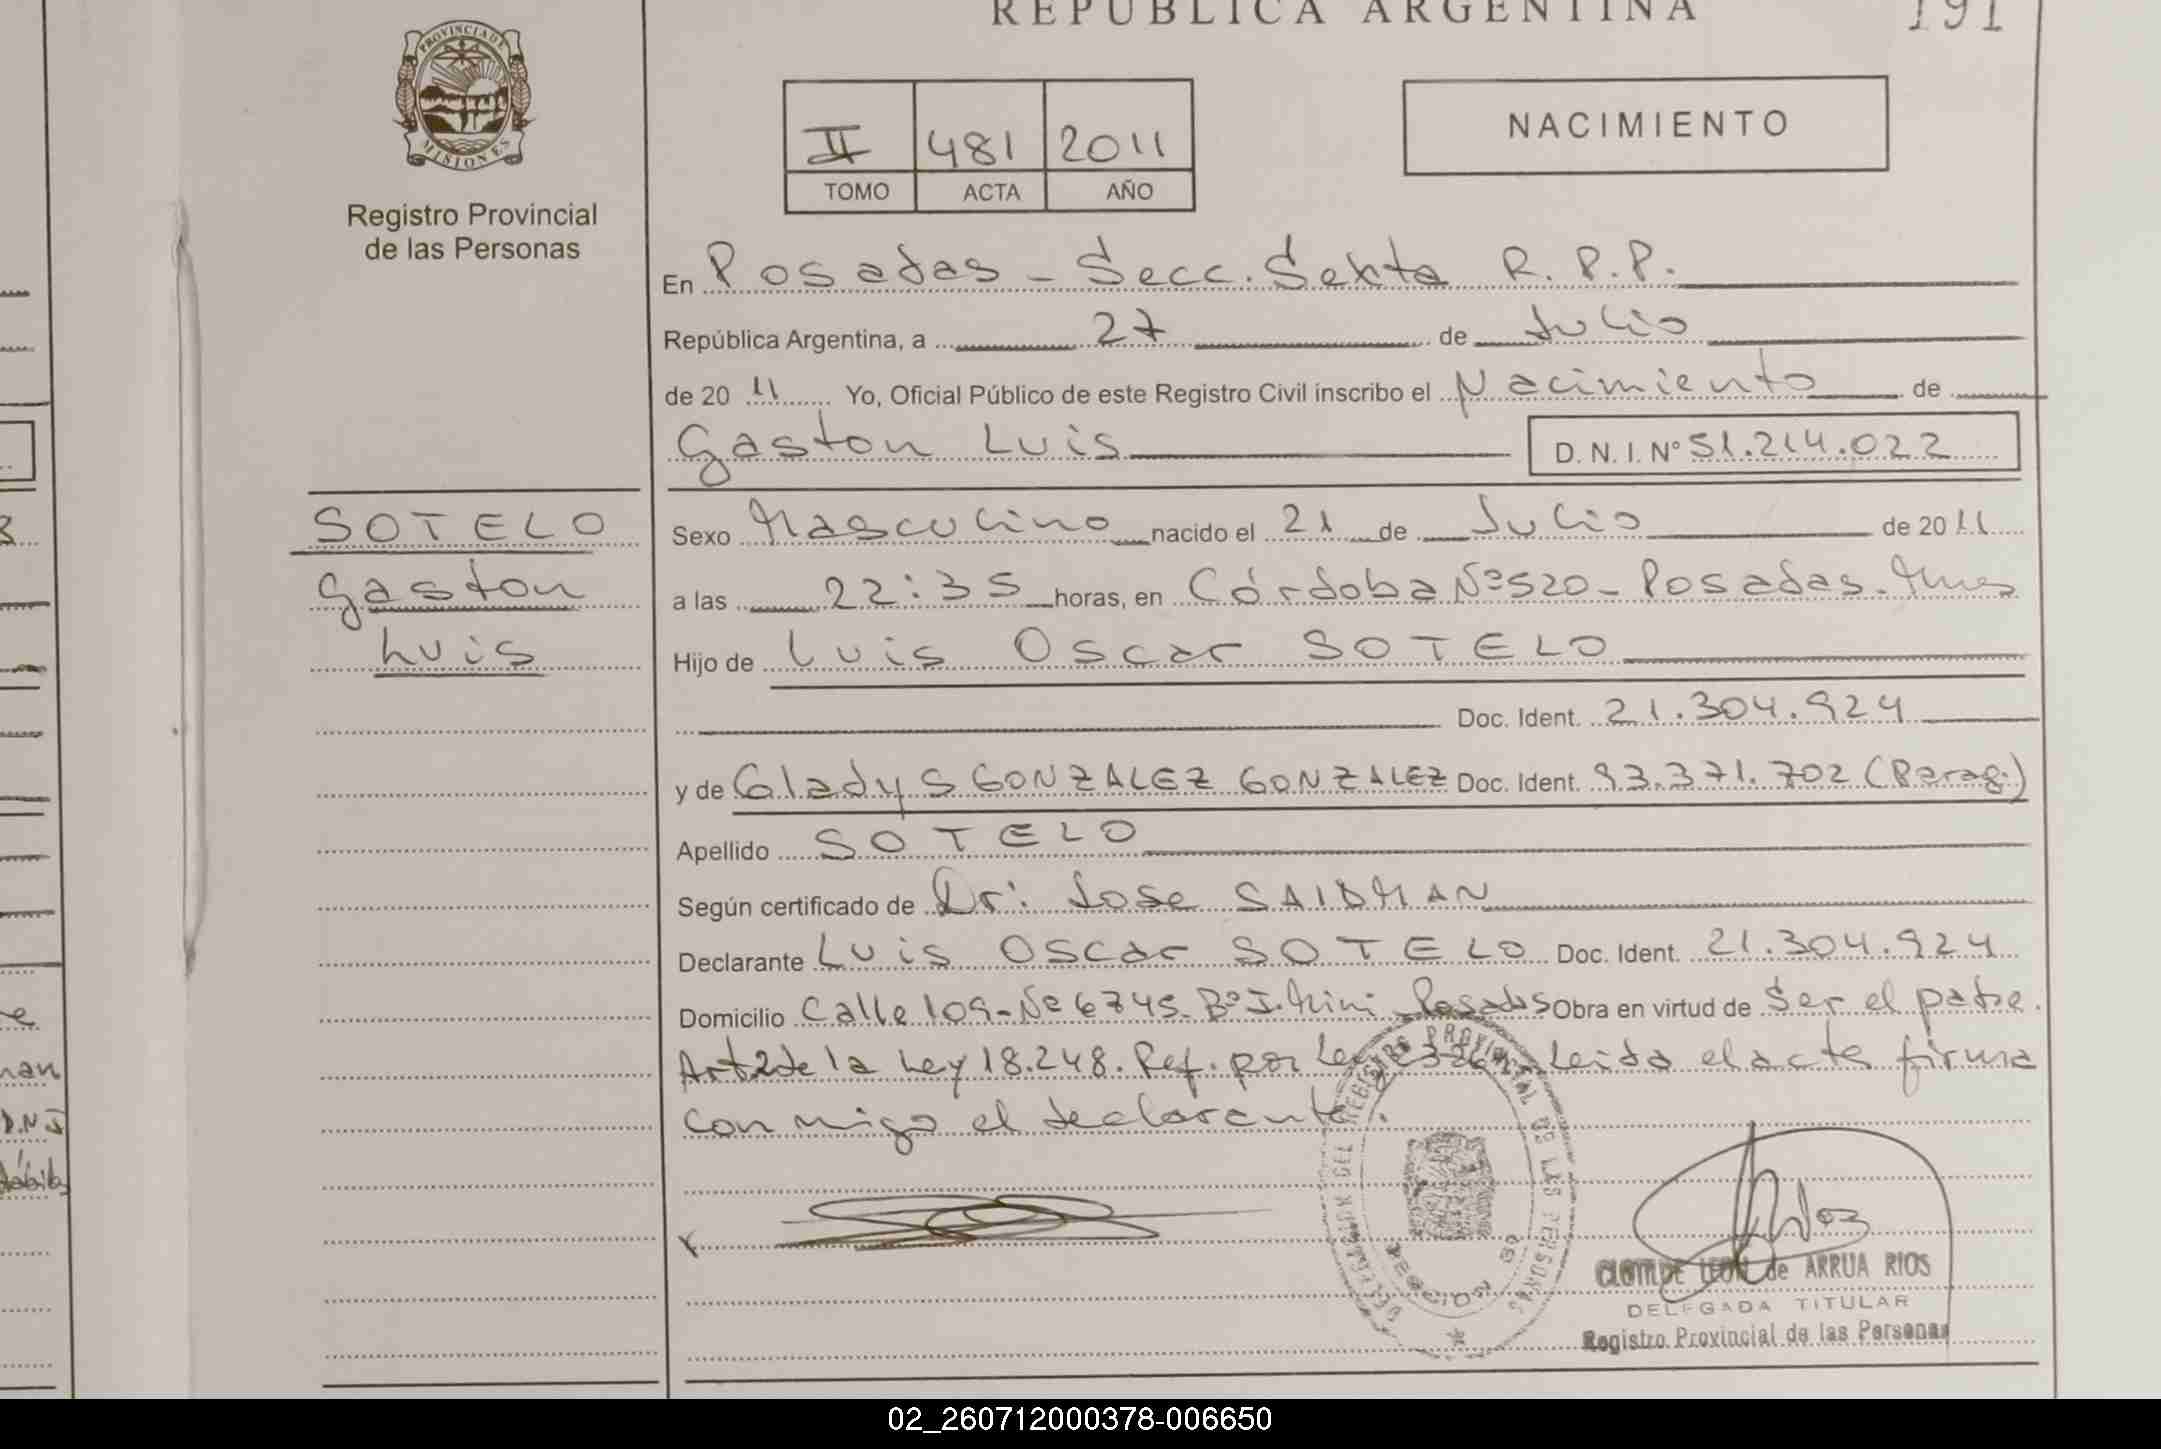 REPUBLICA ARGENTINA
191
PROVINCIA DE
MISIONES
Registro Provincial
de las Personas
II 481 2011
TOMO ACTA AÑO
NACIMIENTO
En Posadas - Secc. Sexta R.P.P.
República Argentina, a 27 de Julio
de 20 11 Yo, Oficial Público de este Registro Civil inscribo el Nacimiento de
Gaston Luis D.N.I. Nº 51.214.022
SOTELO
Gaston
Luis
Sexo Masculino nacido el 21 de Julio de 20 11
a las 22:35 horas, en Córdoba Nº 520 - Posadas - Mnes
Hijo de Luis Oscar SOTELO
Doc. Ident. 21.304.924
y de Gladys GONZALEZ GONZALEZ Doc. Ident. 93.371.702 (Parag.)
Apellido SOTELO
Según certificado de Dr: Jose SAIDMAN
Declarante Luis Oscar SOTELO Doc. Ident. 21.304.924
Domicilio Calle 109 - Nº 6745 - Bº I. Mini Posadas Obra en virtud de Ser el padre.
Art 2 de la Ley 18.248. Ref. por Ley Leida el acta firma
conmigo el declarante.
DELEGACION DEL REGISTRO PROVINCIAL DE LAS PERSONAS
CLOTILDE LEON de ARRUA RIOS
DELEGADA TITULAR
Registro Provincial de las Personas
02_260712000378-006650